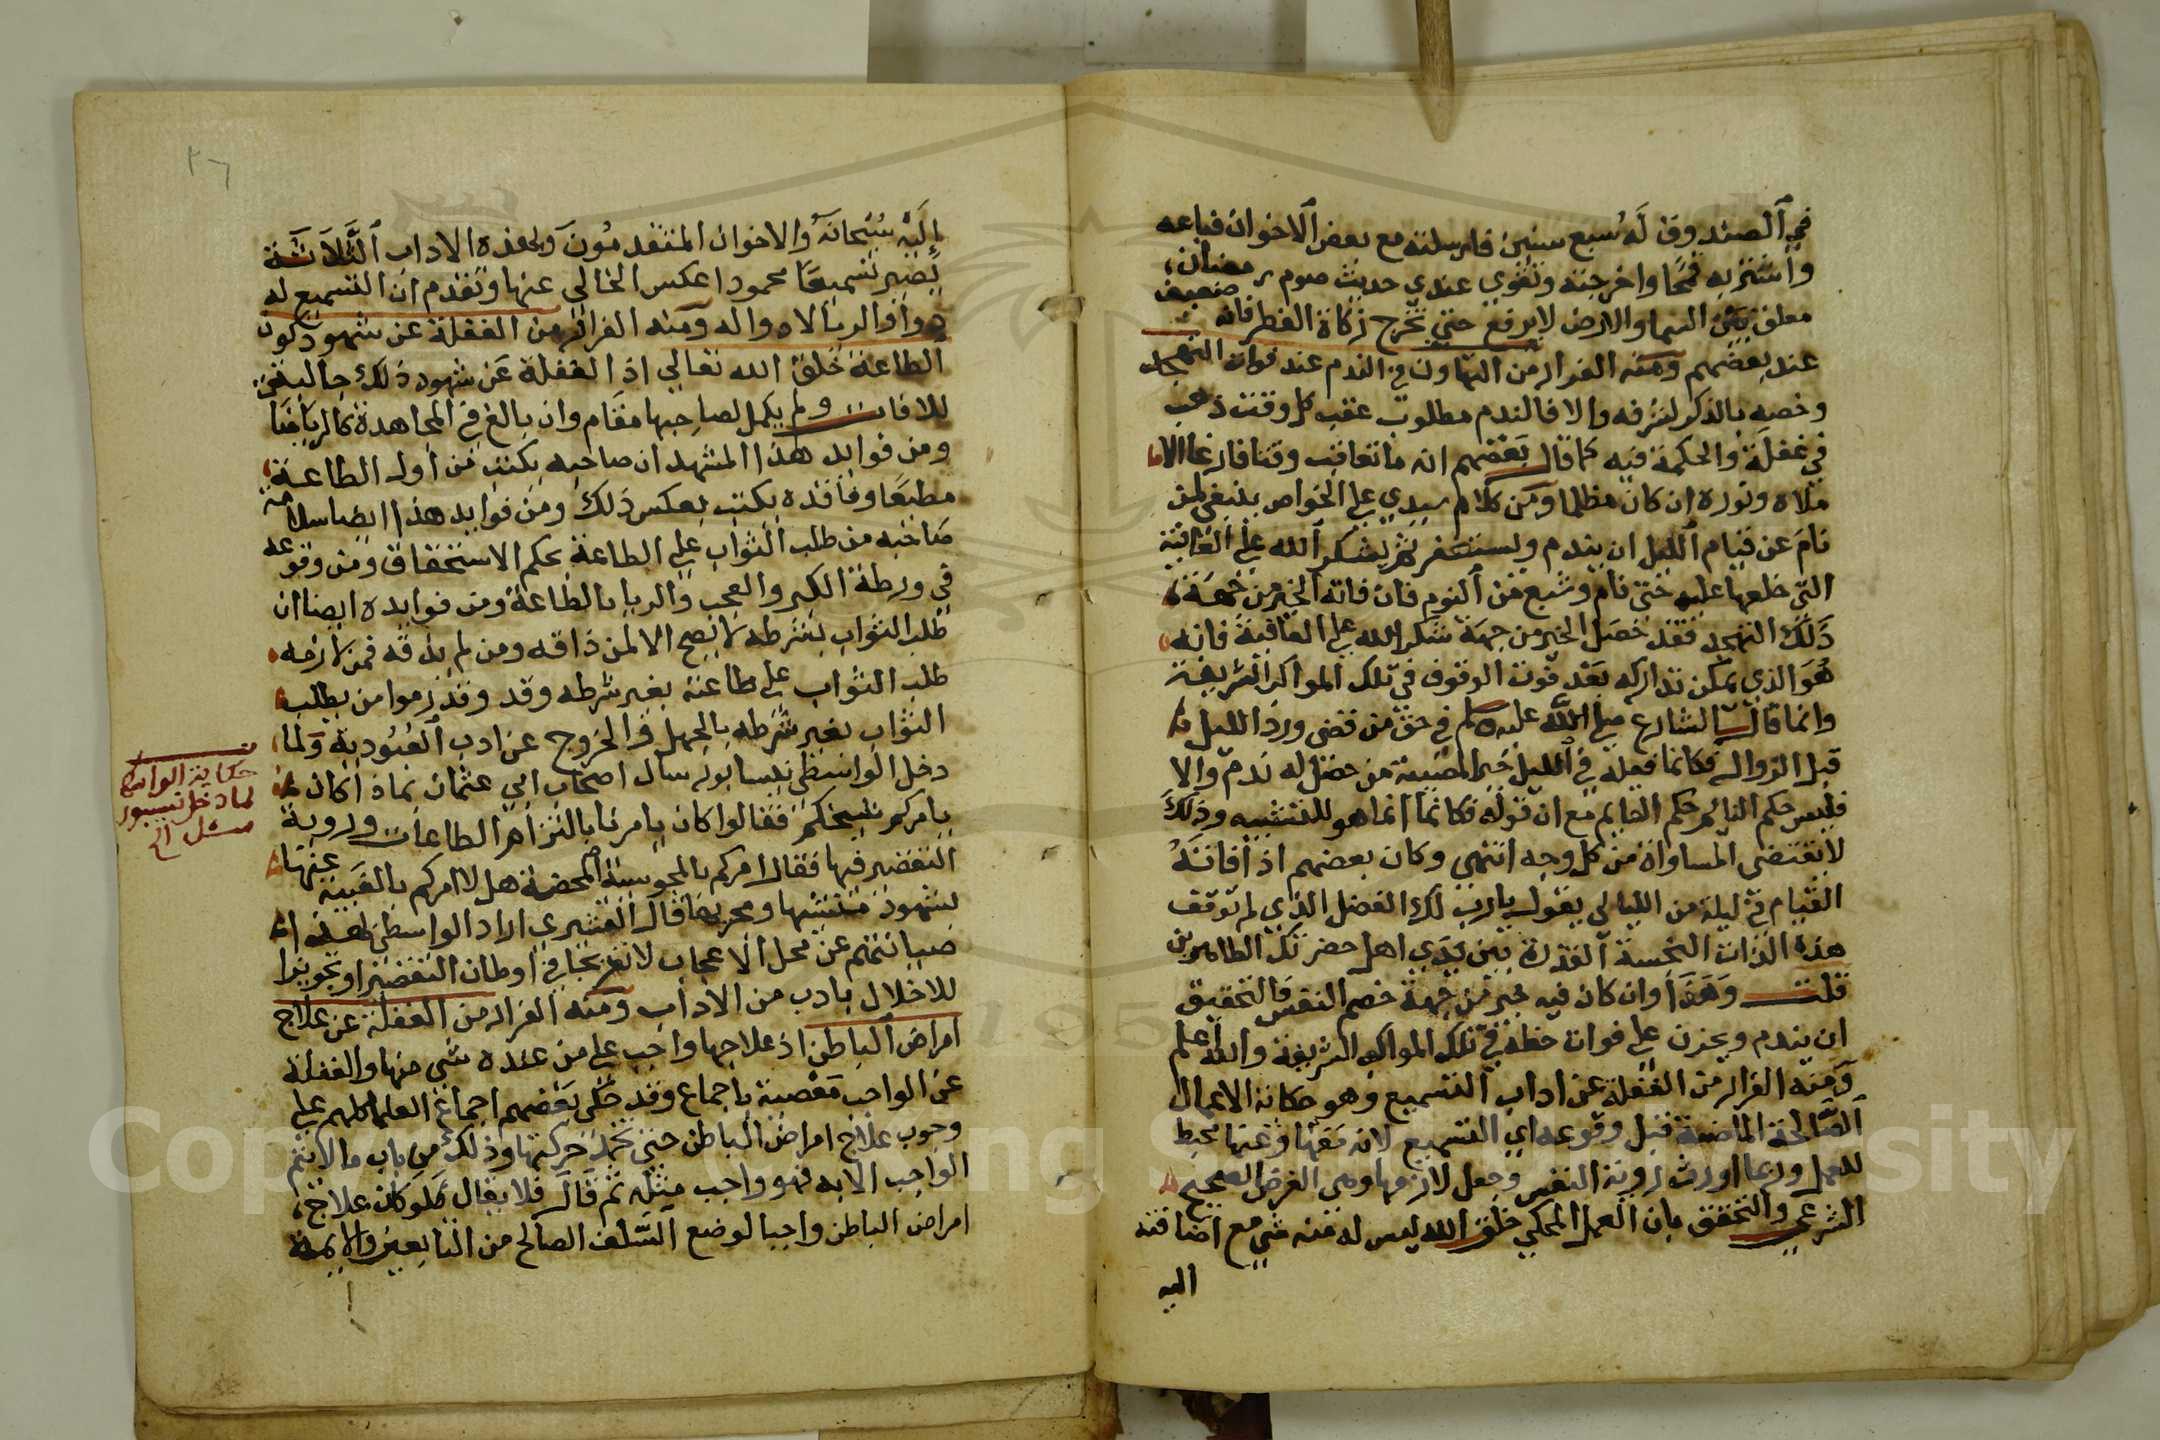 في الصندوق له سبع سنين فارسلته مع بعض الاخوان فباعه
واشتريه قمحا واخرجته وتقوي عندي حديث صوم رمضان
معلق بين السما والارض لا يرفع حتي تخرج زكاة الفطر فانه ضعيف
عند بعضهم ومنه الفرار من التهاون في الندم عند فوات التهجد
وخصه بالذكر لشرفه والا فالندم مطلوب عقب كل وقت ذهب
في غفلة والحكمة فيه كما قال بعضهم انه ما تعاقب وقتا فارغا الا
ملاه ونوره ان كان مظلما ومن كلام سيدي علي الخواص ينبغي لمن
نام عن قيام الليل ان يندم ويستغفر ثم يشكر الله علي العافية
التي خلعها عليه حتي نام وشبع من النوم فان فاته الخير من جهة
ذلك التهجد فقد حصل الخير من جهة شكر الله علي العافية فانه
هو الذي يمكن تداركه بعد فوت الوقوف في تلك المواكب الشريفة
وانما قال الشارع صلي الله عليه وسلم في حق من قضي ورد الليل
قبل الزوال فكانما فعله في الليل خيرا لمصيبة من حصل له ندم والا
فليس حكم النائم حكم القايم مع ان قوله فكانما انما هو للتشبيه وذلك
لا يقتضي المساواة من كل وجه انتهي وكان بعضهم اذا فاته
القيام في ليلة من الليالي يقول يارب لك الفضل الذي لم توقف
هذه الذات النجسة القذرة بين يدي اهل حضرتك الطاهرين
قلت وهذا وان كان فيه خير من جهة هضم النفس فالتحقيق
ان يندم ويحزن علي فوات حظه في تلك المواكب الشريفة والله اعلم
ومنه الفرار من الغفلة عن اداب التسميع وهو حكاية الاعمال
الصالحة الماضية قبل وقوعه اي التسميع لانه معها وعنها محبط
للعمل وربما اورث روية النفس وجعل لازمها وهي الغرض الصحيح
الشرعي والتحقق بان العمل المحكي خلق الله ليس له منه شي مع اضافته
اليه
٢٦
إليه سبحانه والاخوان المتقدمون وبهذه الاداب الثلاثة
يصير تسميعا محمودا عكس الخالي عنها وتقدم ان التسميع له
دوا والريا لا دوا له ومنه الفرار من الغفلة عن شهود كون
الطاعة خلق الله تعالي اذ الغفلة عن شهود ذلك جالبة
للافات ولم يكمل لصاحبها مقام وان بالغ في المجاهدة كالرياضات
ومن فوايد هذا المشهد ان صاحبه يكتب من اول الطاعة
مطيعا وفاقده يكتب بعكس ذلك ومن فوايد هذا ايضا سلامة
صاحبه من طلب الثواب علي الطاعة بحكم الاستحقاق ومن وقوعه
في ورطة الكبر والعجب والريا بالطاعة ومن فوايده ايضا ان
طلب الثواب بشرطه لا يصح الا لمن ذاقه ومن لم يذقه فمن لازمه
طلب الثواب علي طاعته بغير شرطه وقد وقد ذموا من يطلب
الثواب بغير شرطه بالجهل والخروج عن ادب العبودية ولما
دخل الواسطي نيسابور سال اصحاب ابي عثمان بماذا كان
يامركم شيخكم فقالوا كان يامرنا بالتزام الطاعات وروية
التقصير فيها فقال امركم بالمجوسية المحضة هل لا امركم بالغيبة عنها
بشهود منشيها ومجريها قال القشيري اراد الواسطي بهذا
صيانتهم عن محل الاعجاب لا تعريجا في اوطان التقصير او تجويزا
للاخلال بادب من الاداب ومنه الفرار من الغفلة عن علاج
امراض الباطن اذ علاجها واجب علي من عنده شي منها والغفلة
عن الواجب معصية باجماع وقد حكي بعضهم اجماع العلما كلهم علي
وجوب علاج امراض الباطن حتي تخمد حركتها وذلك من باب ما لا يتم
الواجب الا به فهو واجب مثله ثم قال فلا يقال فلو كان علاج
امراض الباطن واجبا لوضع السلف الصالح من التابعين والايمة
حكاية الواسطي
لما دخل نيسبور